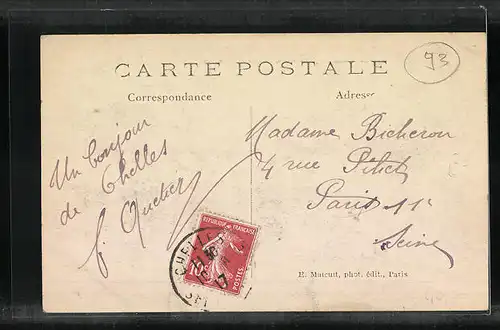 93
CARTE POSTALE
Correspondance
Adresse
Un bonjour
de Chelles
Madame Bicheron
4 rue Pihet
Paris 11e
Seine
REPUBLIQUE FRANÇAISE
10
CHELLES
E. Mutcuit, phot. édit., Paris